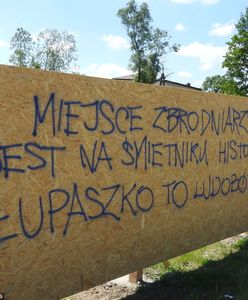 MIEJSCE ZBRODNIARZ
JEST NA ŚMIETNIKU HISTO
ŁUPASZKO TO LUDOBÓ